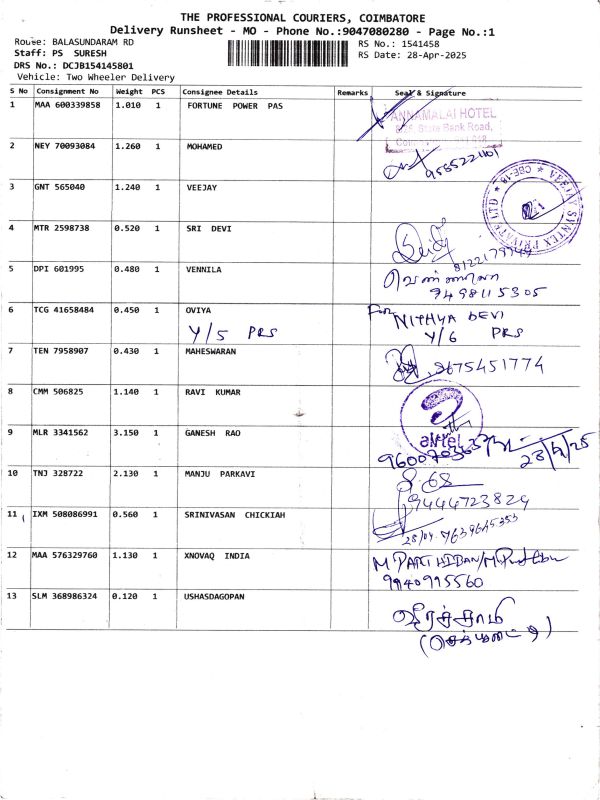 THE PROFESSIONAL COURIERS, COIMBATORE
Delivery Runsheet - MO - Phone No.:9047080280 - Page No.:1
Route: BALASUNDARAM RD
RS No.: 1541458
Staff: PS SURESH
RS Date: 28-Apr-2025
DRS No.: DCJB154145801
Vehicle: Two Wheeler Delivery
S No Consignment No Weight PCS Consignee Details Remarks Seal & Signature
1 MAA 600339858 1.010 1 FORTUNE POWER PAS
ANNAMALAI HOTEL
State Bank Road,
2 NEY 70093084 1.260 1 MOHAMED
3 GNT 565040 1.240 1 VEEJAY
VEEJAY SYNTEX PRIVATE LTD * CBE-18 *
4 MTR 2598738 0.520 1 SRI DEVI
5 DPI 601995 0.480 1 VENNILA
வெண்ணிலா
9498115305
6 TCG 41658484 0.450 1 OVIYA
For NITHYA DEVI
Y/5 PRS
Y/6 PRS
7 TEN 7958907 0.430 1 MAHESWARAN
9675451774
8 CMM 506825 1.140 1 RAVI KUMAR
airtel
9 MLR 3341562 3.150 1 GANESH RAO
28/4/25
10 TNJ 328722 2.130 1 MANJU PARKAVI
9444723824
11 IXM 508086991 0.560 1 SRINIVASAN CHICKIAH
28/04 7639645353
12 MAA 576329760 1.130 1 XNOVAQ INDIA
M PARTHIBAN
9940995560
13 SLM 368986324 0.120 1 USHASDAGOPAN